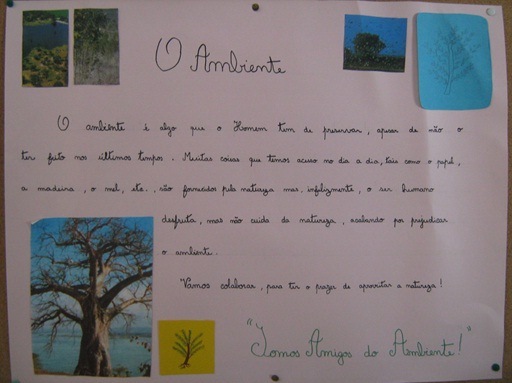 O Ambiente
O ambiente é algo que o Homem tem de preservar, apesar de não o
ter feito nos últimos tempos. Muitas coisas que temos acesso no dia a dia, tais como o papel,
a madeira, o mel, etc., são fornecidos pela natureza mas, infelizmente, o ser humano
desfruta, mas não cuida da natureza, acabando por prejudicar
o ambiente.
"Vamos colaborar, para ter o prazer de aproveitar a natureza!
"Somos Amigos do Ambiente!"